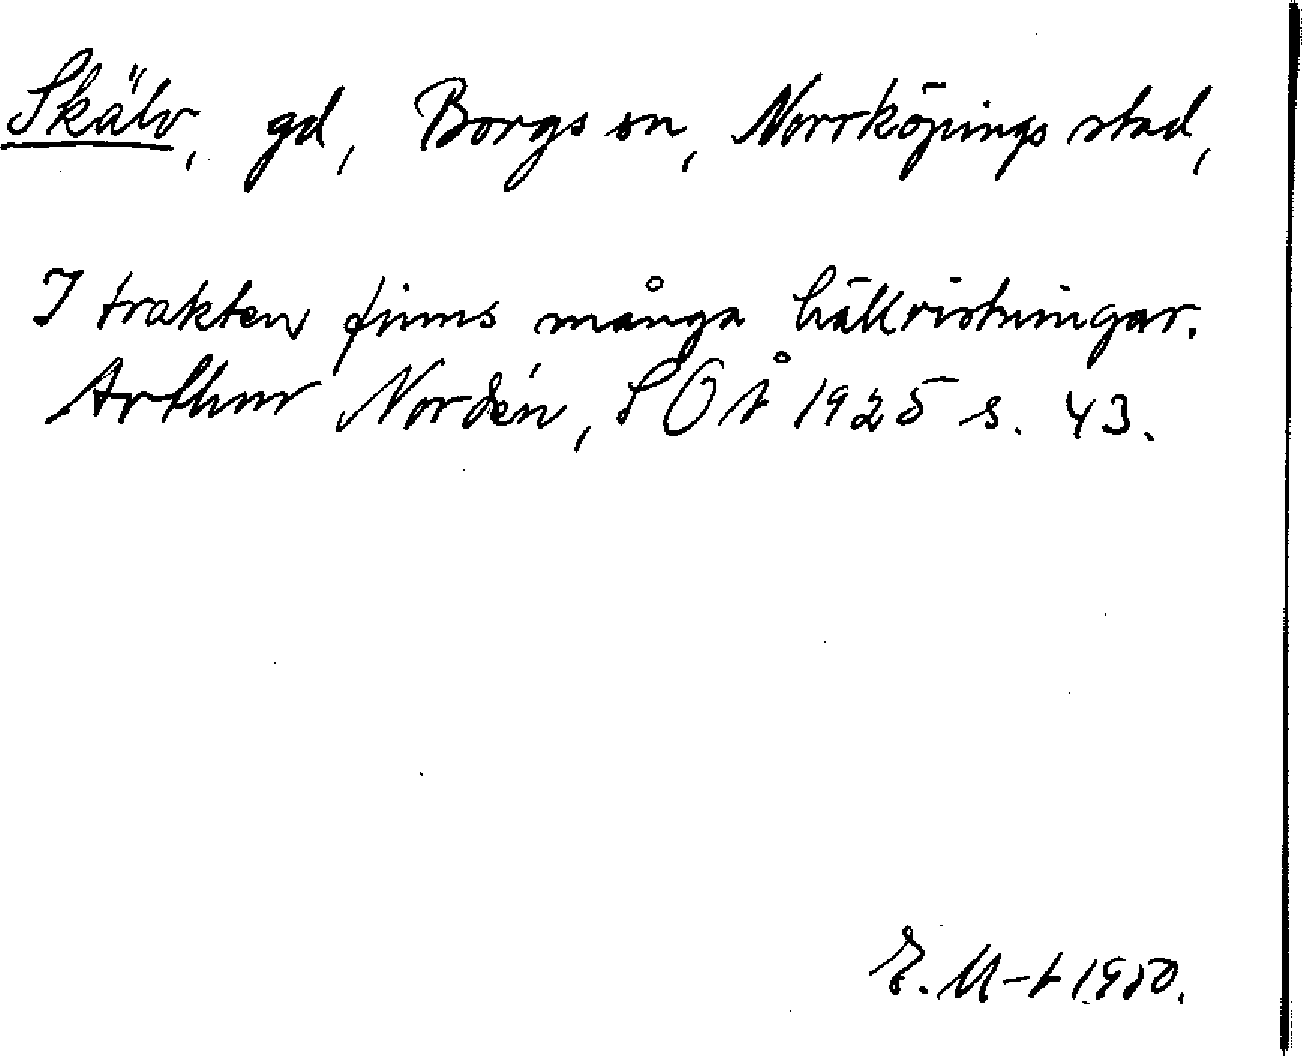 Skälv, gd, Borgs sn, Norrköpings stad,
I trakten finns många hällristningar.
Arthur Nordén, SOÅ 1925 s. 43.
E. M-t 1950.